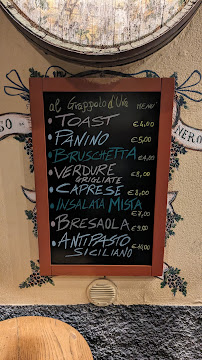 al Grappolo d'Uva
MENU'
TOAST €4,00
PANINO €5,00
BRUSCHETTA €4,00
VERDURE €8,00
GRIGLIATE
CAPRESE €8,00
INSALATA MISTA
€7,00
BRESAOLA €9,00
ANTIPASTO €10,00
SICILIANO